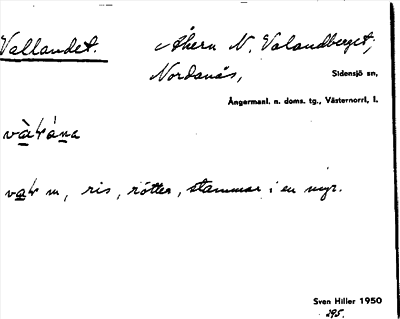 Vallandet. Åkern N. Valandberget,
Nordanås, Sidensjö sn,
Ångermanl. n. doms. tg., Västernorrl, l.
vàkána
vak m, ris, rötter, stammar i en myr.
Sven Hiller 1950
295.